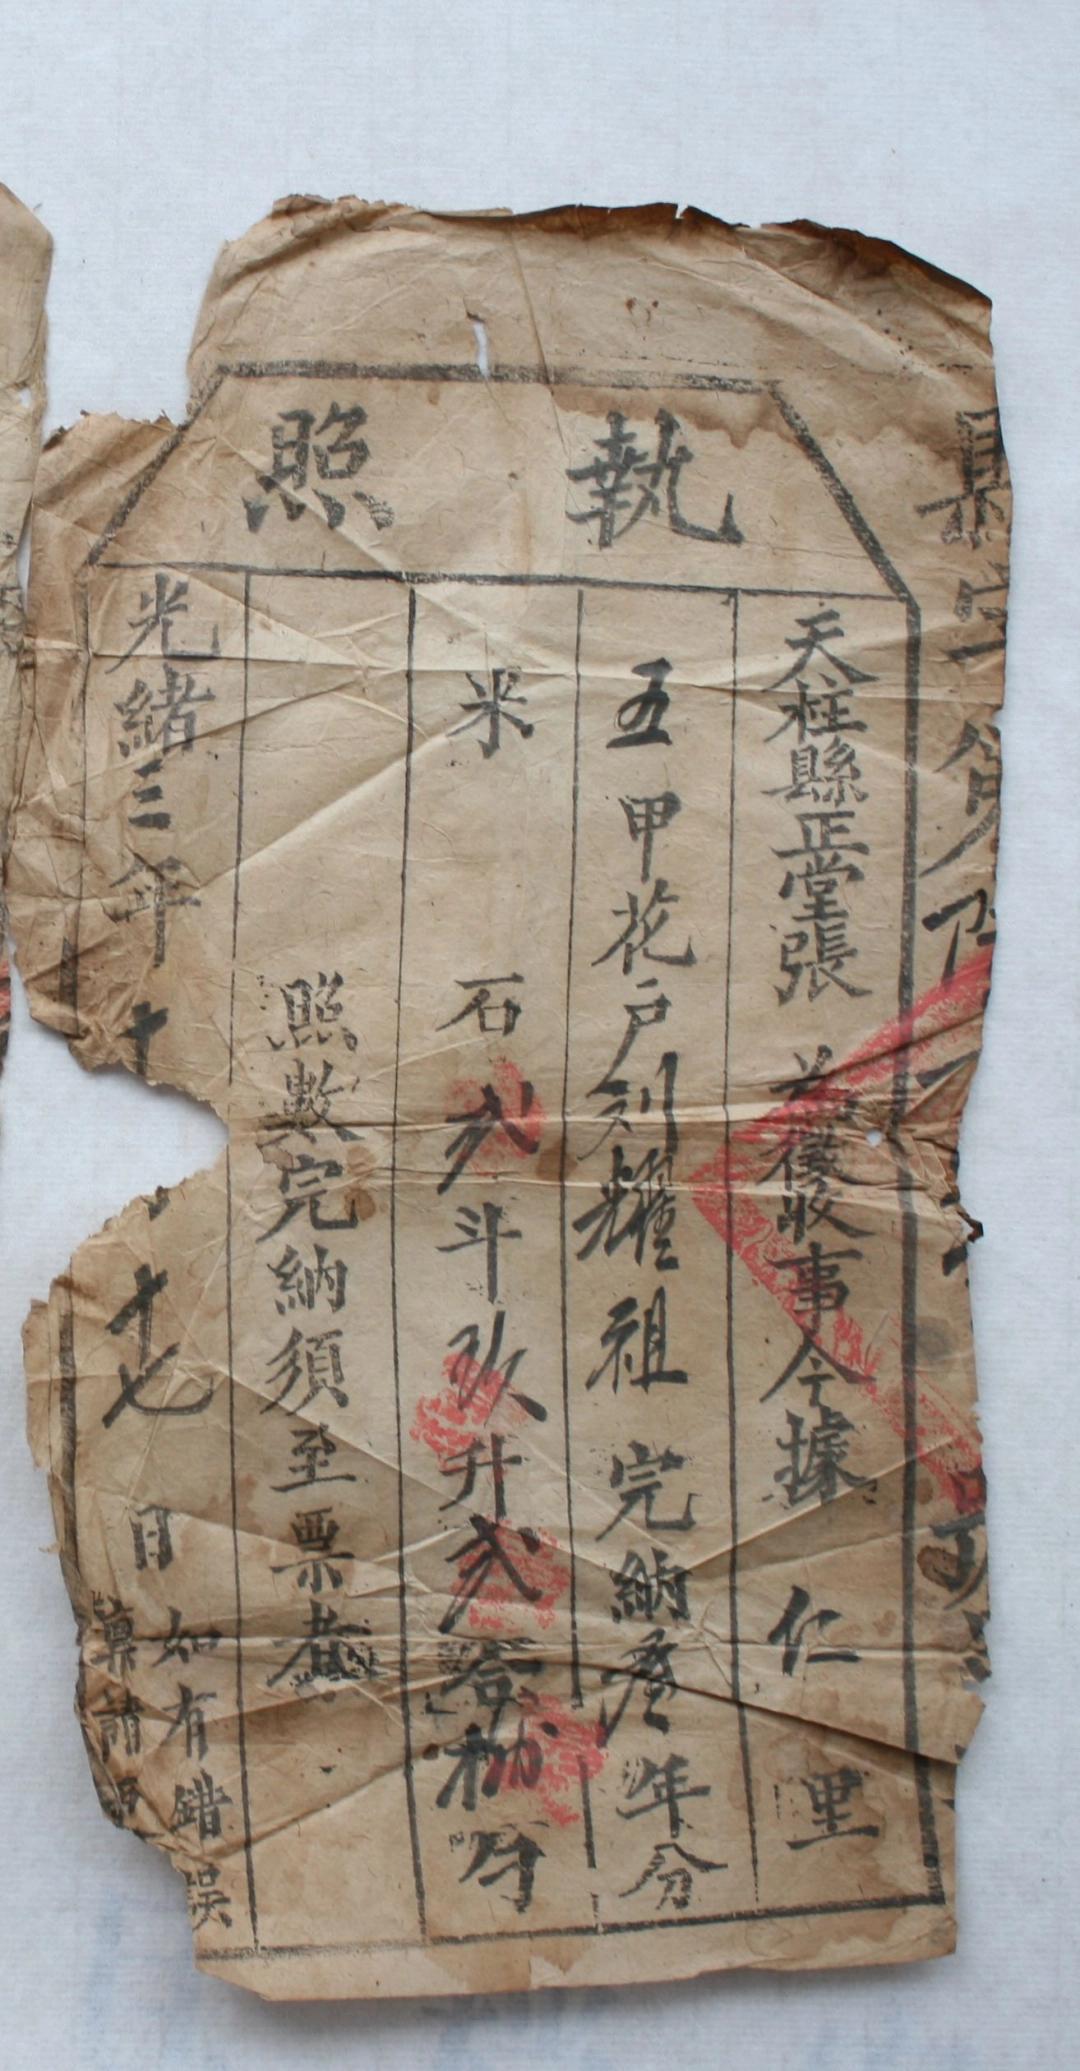 執照
天柱縣正堂張 為徵收事今據 仁 里
五甲花户刘耀祖完納叁年分
米 石弍斗玖升弍合柒勺
照數完納須至票者
光緒三年十 十七日
如有錯誤
稟請
縣字第